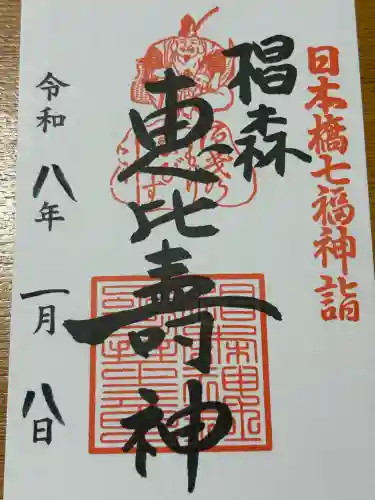 日本橋七福神詣
椙森
恵比壽神
令和八年一月八日